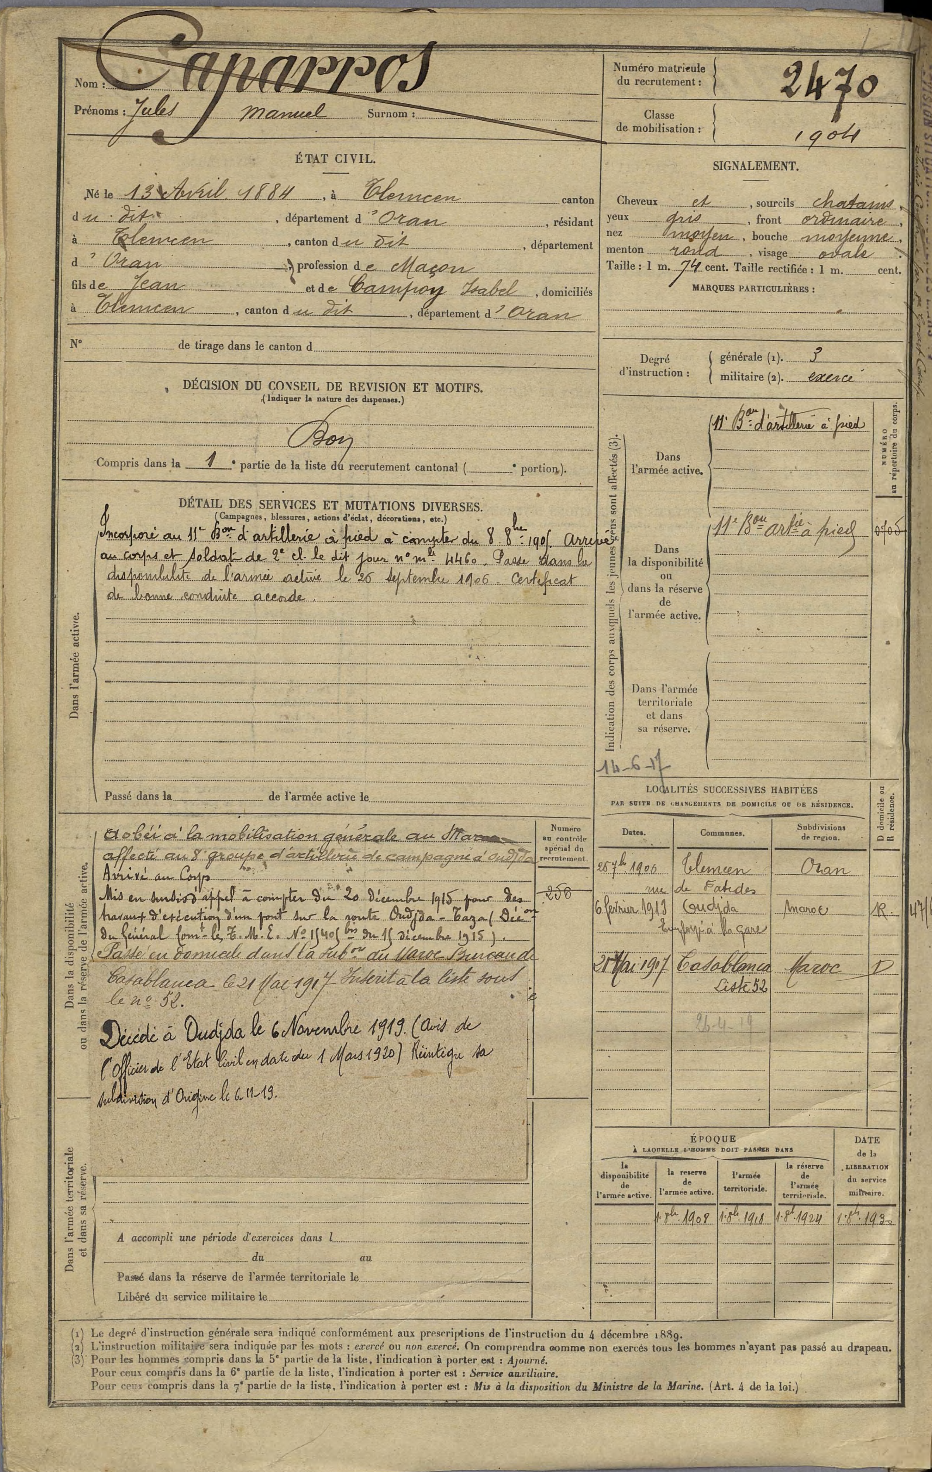 Nom : Caparros
Prénoms : Jules Manuel Surnom :
Numéro matricule
du recrutement : 2470
Classe
de mobilisation : 1904
ÉTAT CIVIL.
Né le 13 Avril 1884, à Tlemcen canton
du dit, département d'Oran, résidant
à Tlemcen, canton du dit, département
d'Oran, profession de Maçon
fils de Jean et de Campoy Isabel, domiciliés
à Tlemcen, canton du dit, département d'Oran
N° de tirage dans le canton d
SIGNALEMENT.
Cheveux et, sourcils chatains,
yeux gris, front ordinaire,
nez moyen, bouche moyenne,
menton rond, visage ovale
Taille : 1 m. 74 cent. Taille rectifiée : 1 m. cent.
MARQUES PARTICULIÈRES :
Degré
d'instruction :
générale (1). 3
militaire (2). exercé
DÉCISION DU CONSEIL DE REVISION ET MOTIFS.
(Indiquer la nature des dispenses.)
Bon
Compris dans la 1e partie de la liste du recrutement cantonal ( e portion).
DÉTAIL DES SERVICES ET MUTATIONS DIVERSES.
(Campagnes, blessures, actions d'éclat, décorations, etc.)
Dans l'armée active.
Incorporé au 11e Bon d'artillerie à pied à compter du 8 8bre 1905 Arrivé
au corps et soldat de 2e cl. le dit jour n° mle 4460. Passé dans la
disponibilité de l'armée active le 26 septembre 1906. Certificat
de bonne conduite accordé.
Passé dans la de l'armée active le
Indication des corps auxquels les jeunes gens sont affectés (3).
NUMÉRO
au répertoire du corps.
Dans
l'armée active.
11e Bon d'artillerie à pied
Dans
la disponibilité
ou
dans la réserve
de
l'armée active.
11e Bon artie à pied
Dans l'armée
territoriale
et dans
sa réserve.
14-6-17
Dans la disponibilité
ou dans la réserve de l'armée active.
Numéro
au contrôle
spécial du
recrutement.
250
A obéi à la mobilisation générale au Maroc
affecté au 8e groupe d'artillerie de campagne d'Oudjda
Arrivé au Corps
Mis en sursis d'appel à compter du 20 décembre 1915 pour des
travaux d'exécution d'un pont sur la route Oudjda-Taza (Déc.on
du Général Comt les T.M.E. N° 1540 du 15 décembre 1915).
Passé en domicile dans la subon du Maroc Bureau de
Casablanca le 21 Mai 1917 Inscrit à la liste sous
le n° 52.
Décédé à Oudjda le 6 Novembre 1919. (Avis de
l'Officier de l'Etat Civil en date du 1 Mars 1920) Réintègre sa
subdivision d'Origine le 6-11-19.
LOCALITÉS SUCCESSIVES HABITÉES
PAR SUITE DE CHANGEMENTS DE DOMICILE OU DE RÉSIDENCE.
Dates. Communes. Subdivisions
de region. D domicile ou
R résidence.
26 7bre 1906 Tlemcen Oran
rue de Fatides
6 février 1913 Oudjda Maroc R.
Employé à la gare
21 Mai 1917 Casablanca Maroc D
Liste 52
26-4-19
Dans l'armée territoriale
et dans sa réserve.
A accompli une période d'exercices dans l
du au
Passé dans la réserve de l'armée territoriale le
Libéré du service militaire le
ÉPOQUE
À LAQUELLE L'HOMME DOIT PASSER DANS
DATE
de la
LIBÉRATION
du service
militaire.
la
disponibilité
de
l'armée active.
la reserve
de
l'armée active.
l'armée
territoriale.
la réserve
de
l'armée
territoriale.
1 8bre 1908 1 8bre 1918 1 8bre 1924 1 8bre 1930
(1) Le degré d'instruction générale sera indiqué conformément aux prescriptions de l'instruction du 4 décembre 1889.
(2) L'instruction militaire sera indiquée par les mots : exercé ou non exercé. On comprendra comme non exercés tous les hommes n'ayant pas passé au drapeau.
(3) Pour les hommes compris dans la 5e partie de la liste, l'indication à porter est : Ajourné.
Pour ceux compris dans la 6e partie de la liste, l'indication à porter est : Service auxiliaire.
Pour ceux compris dans la 7e partie de la liste, l'indication à porter est : Mis à la disposition du Ministre de la Marine. (Art. 4 de la loi.)